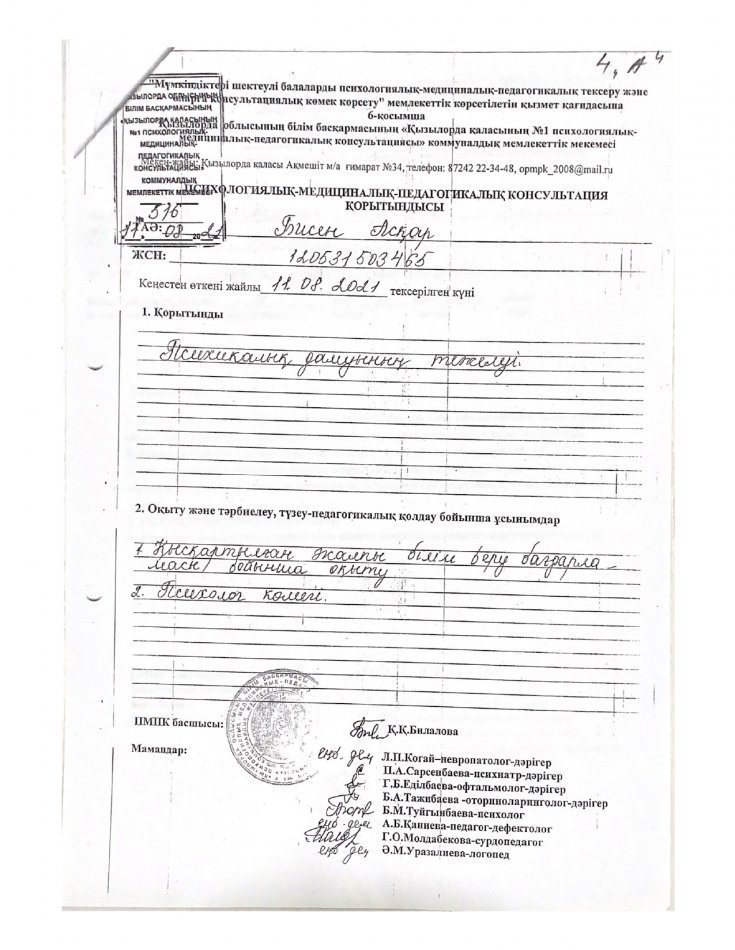 4 "А"
"Мүмкіндіктері шектеулі балаларды психологиялық-медициналық-педагогикалық тексеру және
оларға консультациялық көмек көрсету" мемлекеттік көрсетілетін қызмет қағидасына
6-қосымша
Қызылорда облысының білім басқармасының «Қызылорда қаласының №1 психологиялық-
медициналық-педагогикалық консультациясы» коммуналдық мемлекеттік мекемесі
ҚЫЗЫЛОРДА ОБЛЫСЫНЫҢ
БІЛІМ БАСҚАРМАСЫНЫҢ
«ҚЫЗЫЛОРДА ҚАЛАСЫНЫҢ
№1 ПСИХОЛОГИЯЛЫҚ-
МЕДИЦИНАЛЫҚ-
ПЕДАГОГИКАЛЫҚ
КОНСУЛЬТАЦИЯСЫ»
КОММУНАЛДЫҚ
МЕМЛЕКЕТТІК МЕКЕМЕСІ
№ 376
11. 08 2021
Мекен-жайы: Қызылорда қаласы Ақмешіт м/а ғимарат №34, телефон: 87242 22-34-48, opmpk_2008@mail.ru
ПСИХОЛОГИЯЛЫҚ-МЕДИЦИНАЛЫҚ-ПЕДАГОГИКАЛЫҚ КОНСУЛЬТАЦИЯ
ҚОРЫТЫНДЫСЫ
ТАӘ: Бисен Асқар
ЖСН: 120531503465
Кеңестен өткені жайлы 11.08.2021 тексерілген күні
1. Қорытынды
Психикалық дамуының тежелуі.
2. Оқыту және тәрбиелеу, түзеу-педагогикалық қолдау бойынша ұсынымдар
1. Қысқартылған жалпы білім беру бағдарла-
масы бойынша оқыту
2. Психолог көмегі.
ПМПК басшысы: Қ.Қ.Билалова
Мамандар: еңб. дем Л.П.Когай-невропатолог-дәрігер
П.А.Сарсенбаева-психиатр-дәрігер
Г.Б.Еділбаева-офтальмолог-дәрігер
Б.А.Тажибаева -оториноларинголог-дәрігер
Б.М.Туйгынбаева-психолог
еңб. дем А.Б.Қаниева-педагог-дефектолог
Г.О.Молдабекова-сурдопедагог
еңб дем Ә.М.Уразалиева-логопед